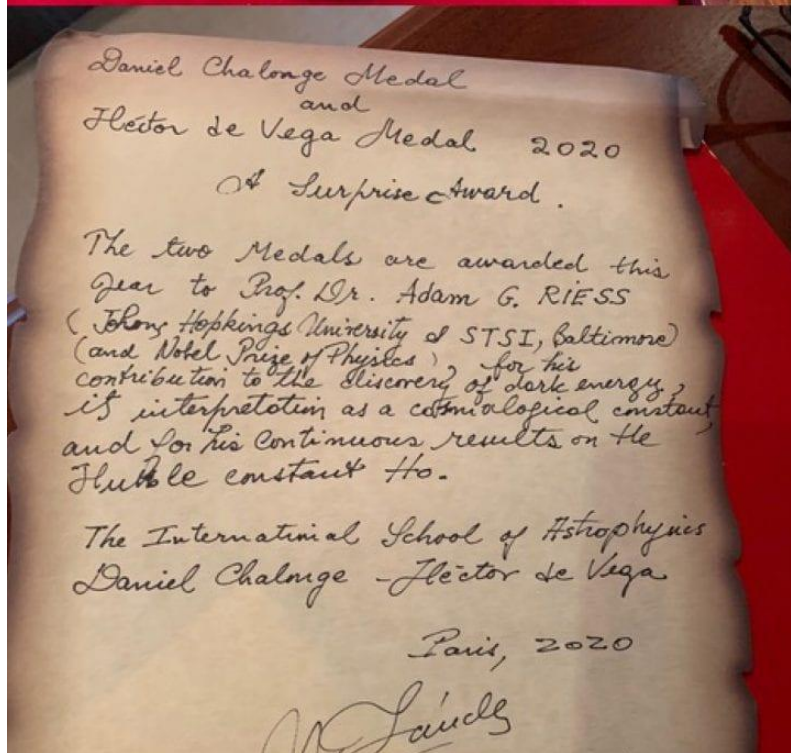 Daniel Chalonge Medal
and
Héctor de Vega Medal 2020
A Surprise Award.
The two Medals are awarded this
year to Prof. Dr. Adam G. RIESS
(Johons Hopkings University & STSI, Baltimore)
(and Nobel Prize of Physics), for his
contribution to the discovery of dark energy,
it interpretation as a cosmological constant,
and for his continuous results on the
Hubble constant Ho.
The International School of Astrophysics
Daniel Chalonge - Héctor de Vega
Paris, 2020